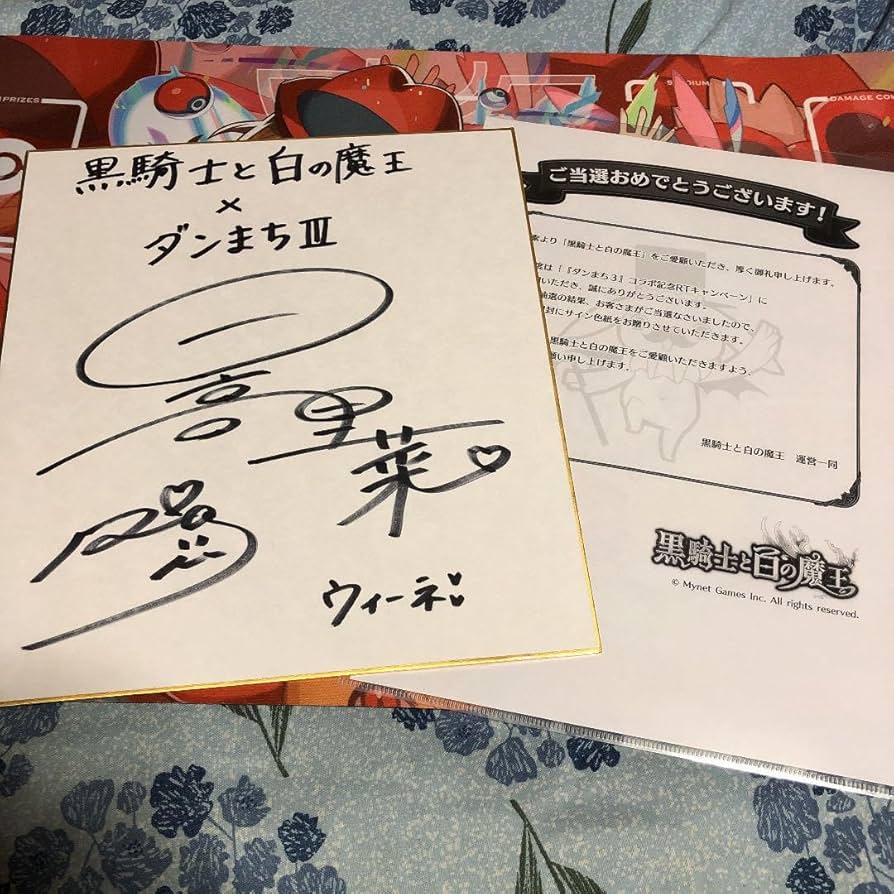 PRIZES
DAMAGE COU
黒騎士と白の魔王
×
ダンまちⅢ
高里菜♡
ウィーネ
ご当選おめでとうございます!
より「黒騎士と白の魔王」をご愛顧いただき、厚く御礼申し上げます。
は「『ダンまち3』コラボ記念RTキャンペーン」に
いただき、誠にありがとうございます。
抽選の結果、お客さまがご当選なさいましたので、
封にサイン色紙をお贈りさせていただきます。
黒騎士と白の魔王をご愛顧いただきますよう、
願い申し上げます。
黒騎士と白の魔王 運営一同
黒騎士と白の魔王
© Mynet Games Inc. All rights reserved.